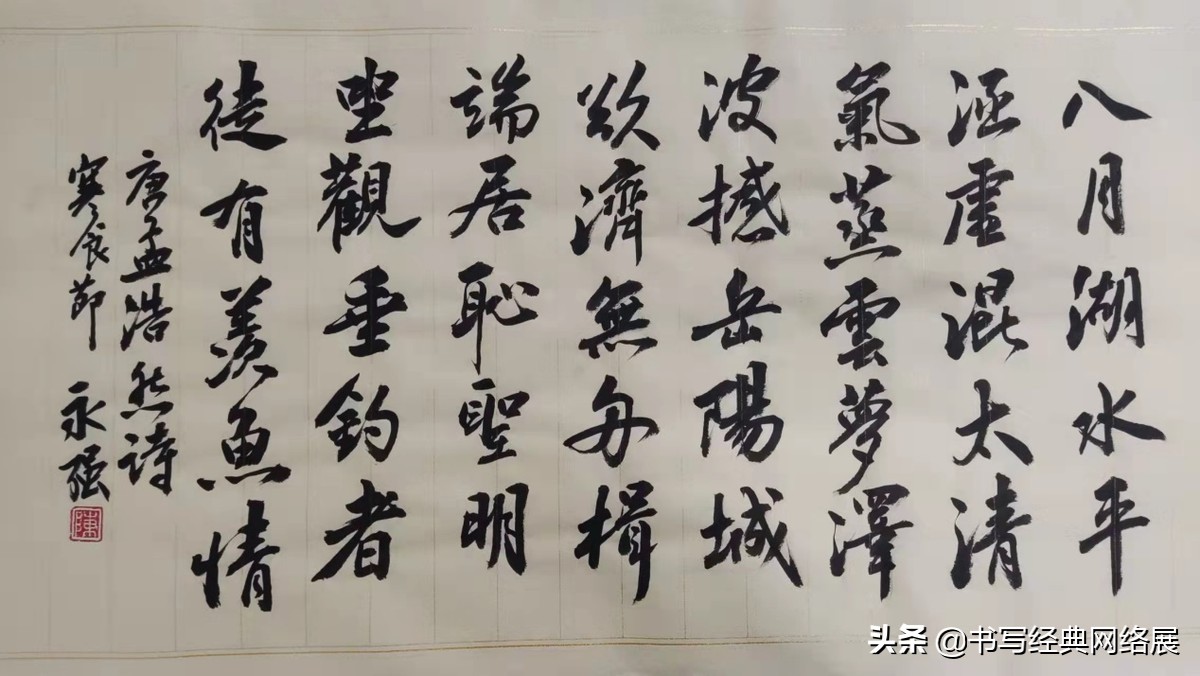 八月湖水平
涵虛混太清
氣蒸雲夢澤
波撼岳陽城
欲濟無舟楫
端居恥聖明
坐觀垂釣者
徒有羨魚情
唐孟浩然詩
寒食節 永强
陳
头条 @书写经典网络展